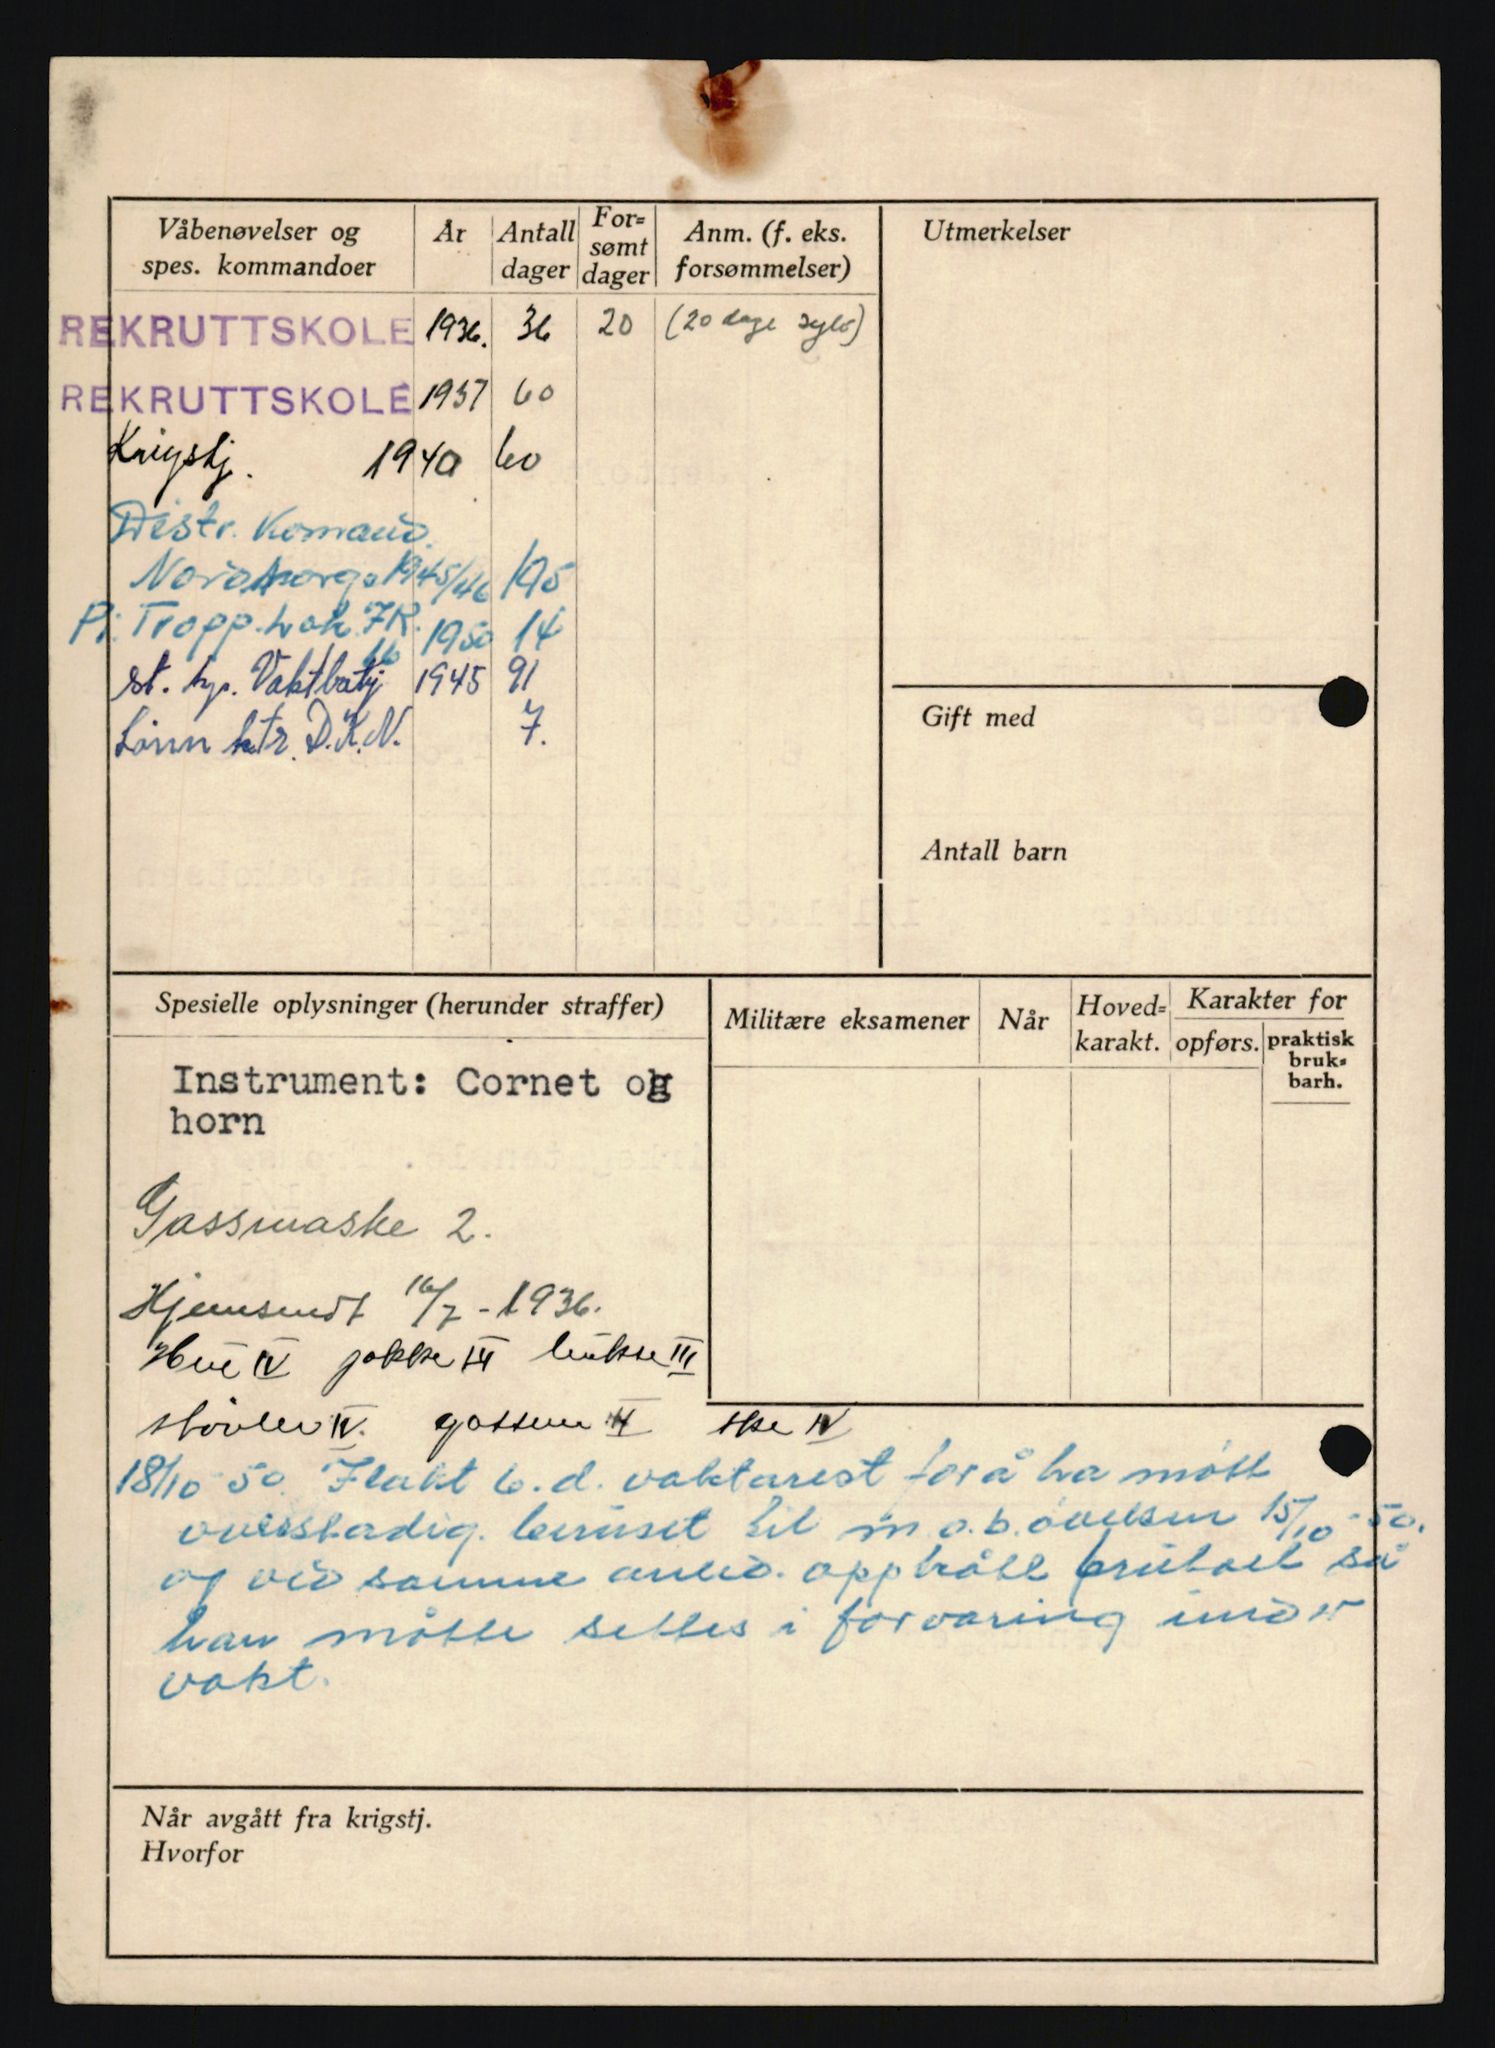 Våbenøvelser og spes. kommandoer | År | Antall dager | Forsømt dager | Anm. (f. eks. forsømmelser)
REKRUTTSKOLE 1936. 36 20 (20 dage syk)
REKRUTTSKOLE 1937 60
Krigstj. 1940 60
Distr. Komand.
Nordnorge 1945/46 195
Pi. Tropp. IR. 16 1950 14
st. kp. Vaktbatj 1945 91
Lønn ktr. D.K.N. 7.
Utmerkelser
Gift med
Antall barn
Spesielle oplysninger (herunder straffer)
Instrument: Cornet og
horn
Gassmaske 2.
Hjemsendt 16/7 - 1936.
Hue IV jakke III bukse III
støvler IV. III ske IV
18/10 50. Ilakt 6. d. vaktarest for å ha møtt
overstadig. beruset til m.o.b. øvelsen 15/10-50.
og ved samme anled. opptrått brutalt så
han måtte settes i forvaring under
vakt.
Militære eksamener | Når | Hoved=karakt. | Karakter for
opførs. | praktisk bruk=barh.
Når avgått fra krigstj.
Hvorfor